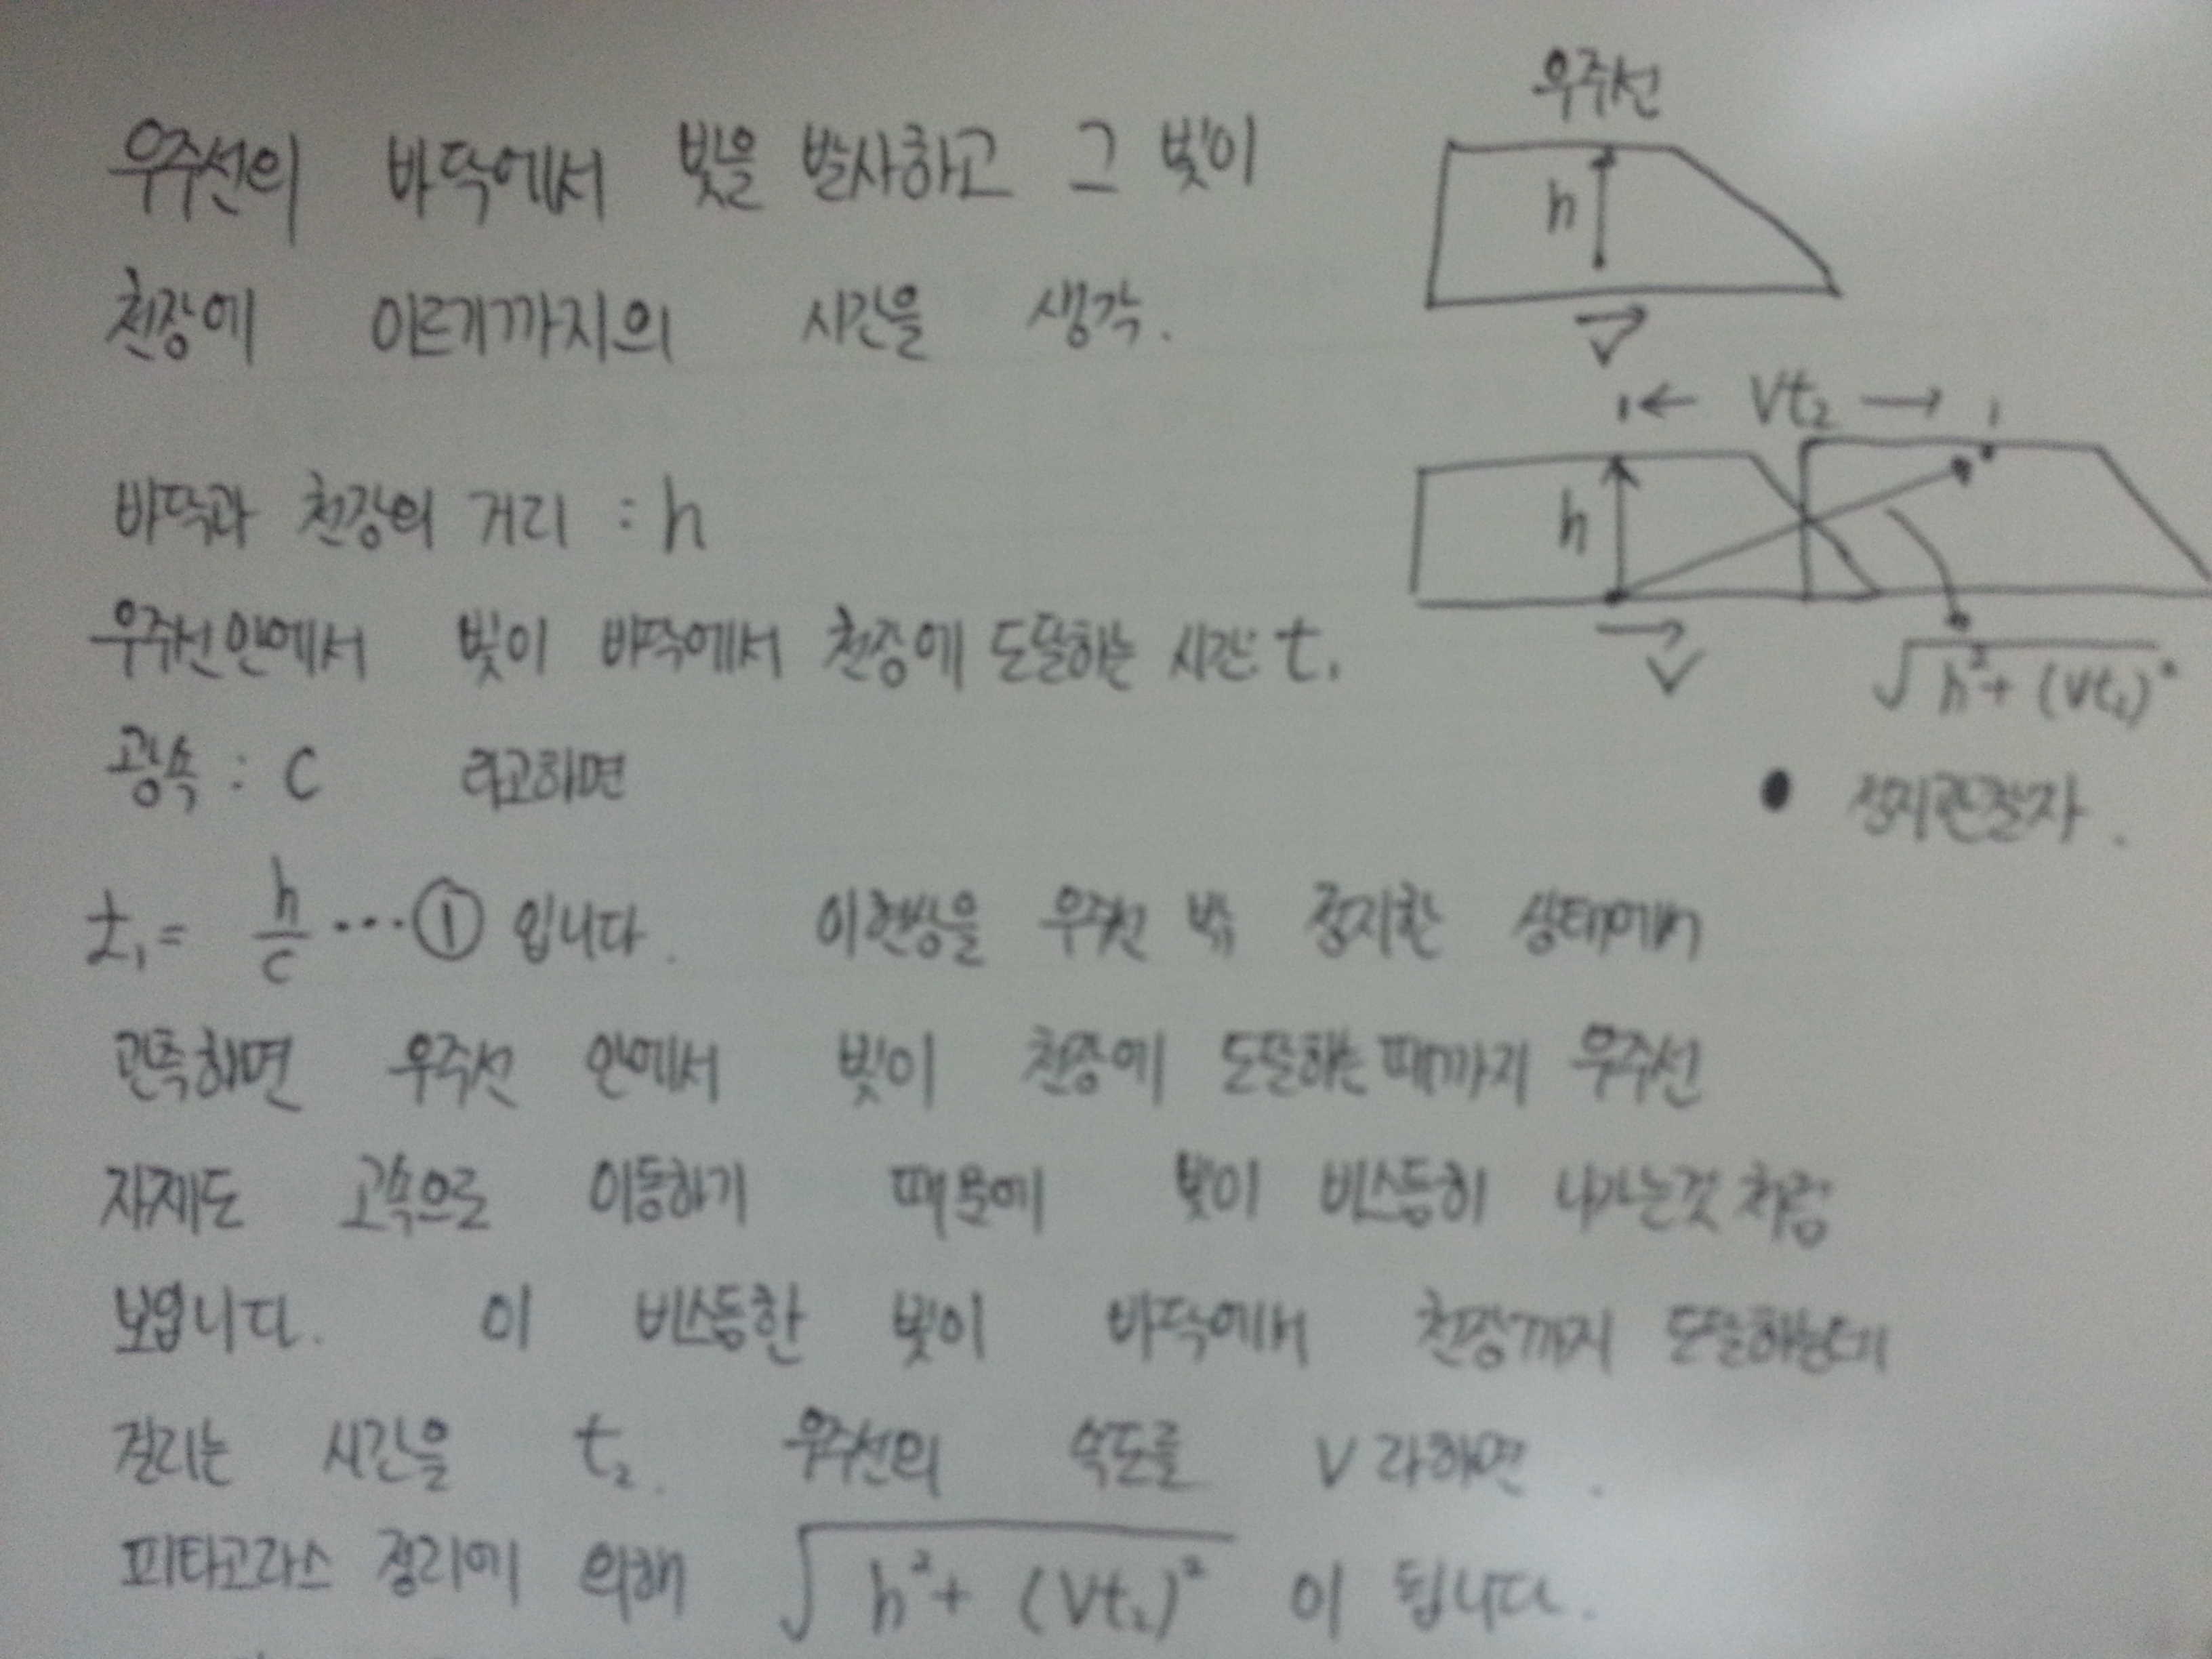 우주선의 바닥에서 빛을 발사하고 그 빛이
천장에 이르기까지의 시간을 생각.
바닥과 천장의 거리 : h
우주선안에서 빛이 바닥에서 천장에 도달하는 시간: t₁
광속 : c 라고하면
t₁ = h/c ···① 입니다. 이현상을 우주선 밖 정지한 상태에서
관측하면 우주선 안에서 빛이 천장에 도달하는때까지 우주선
자체도 고속으로 이동하기 때문에 빛이 비스듬히 나가는것 처럼
보입니다. 이 비스듬한 빛이 바닥에서 천장까지 도달하는데
걸리는 시간을 t₂. 우주선의 속도를 V 라하면.
피타고라스 정리에 의해 √h²+(Vt₂)² 이 됩니다.
우주선
h
V
← Vt₂ →
h
V
√h²+(Vt₂)²
● 정지관찰자.